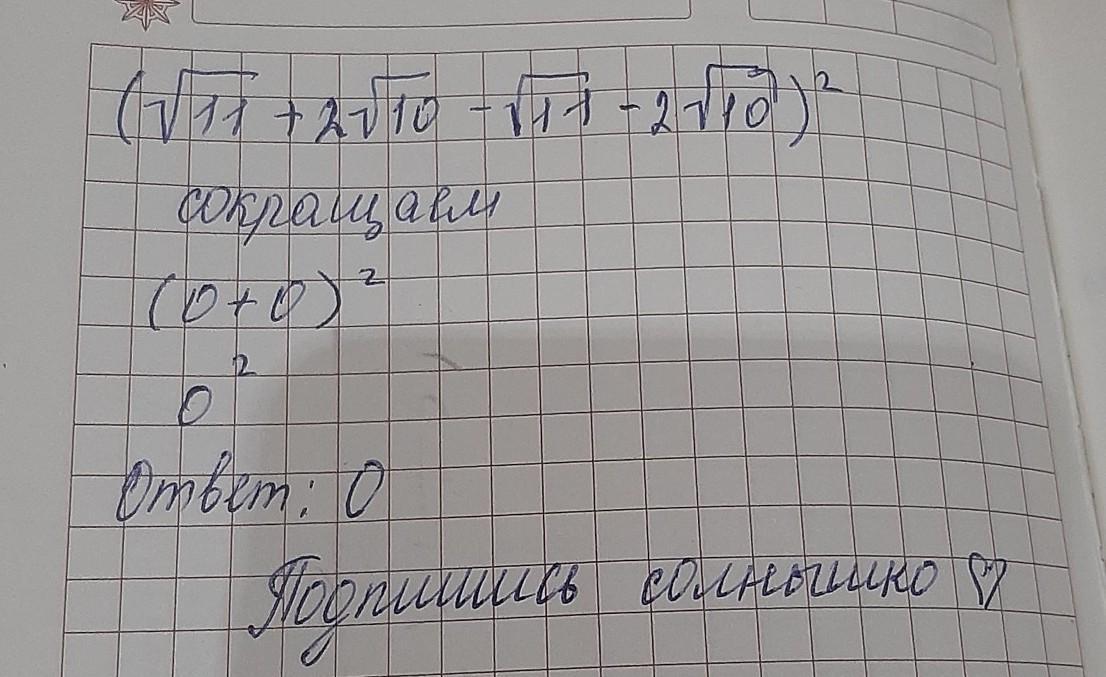 (√11 + 2√10 - √11 - 2√10)²
сокращаем
(0+0)²
0²
Ответ: 0
Подпишись солнышко ♡